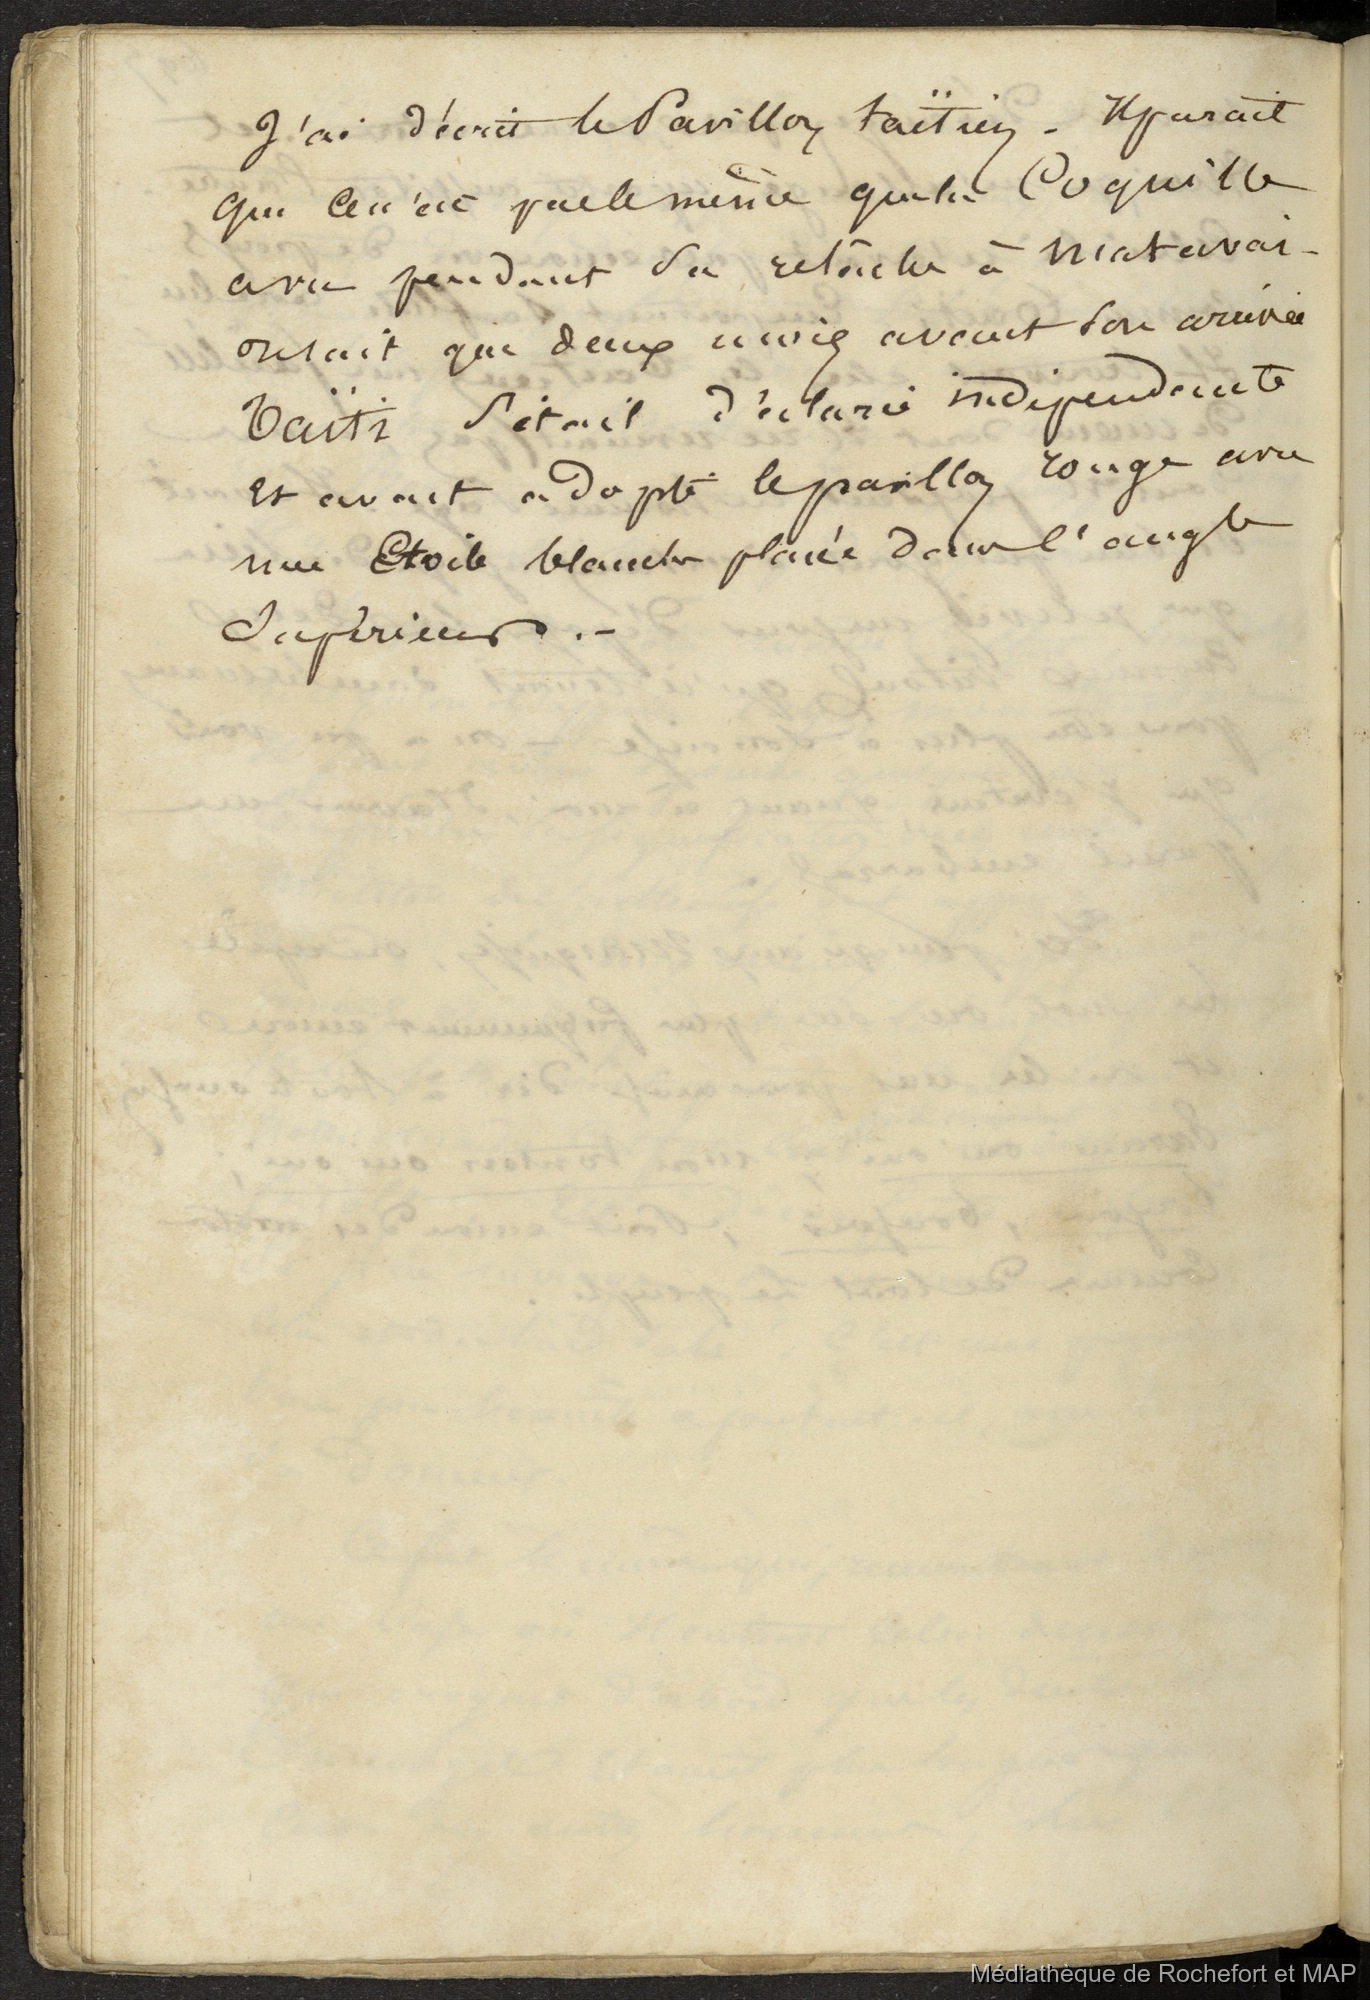 J'ai décrit le Pavillon taïtien - Il parait
que ce n'est pas le même que la Coquille
a vu pendant sa relâche à Matavai -
on sait que deux mois avant son arrivée
Taïti s'était déclarée indépendante
et avait adopté le pavillon rouge avec
une Etoile blanche placée dans l'angle
Supérieur . -
Médiathèque de Rochefort et MAP